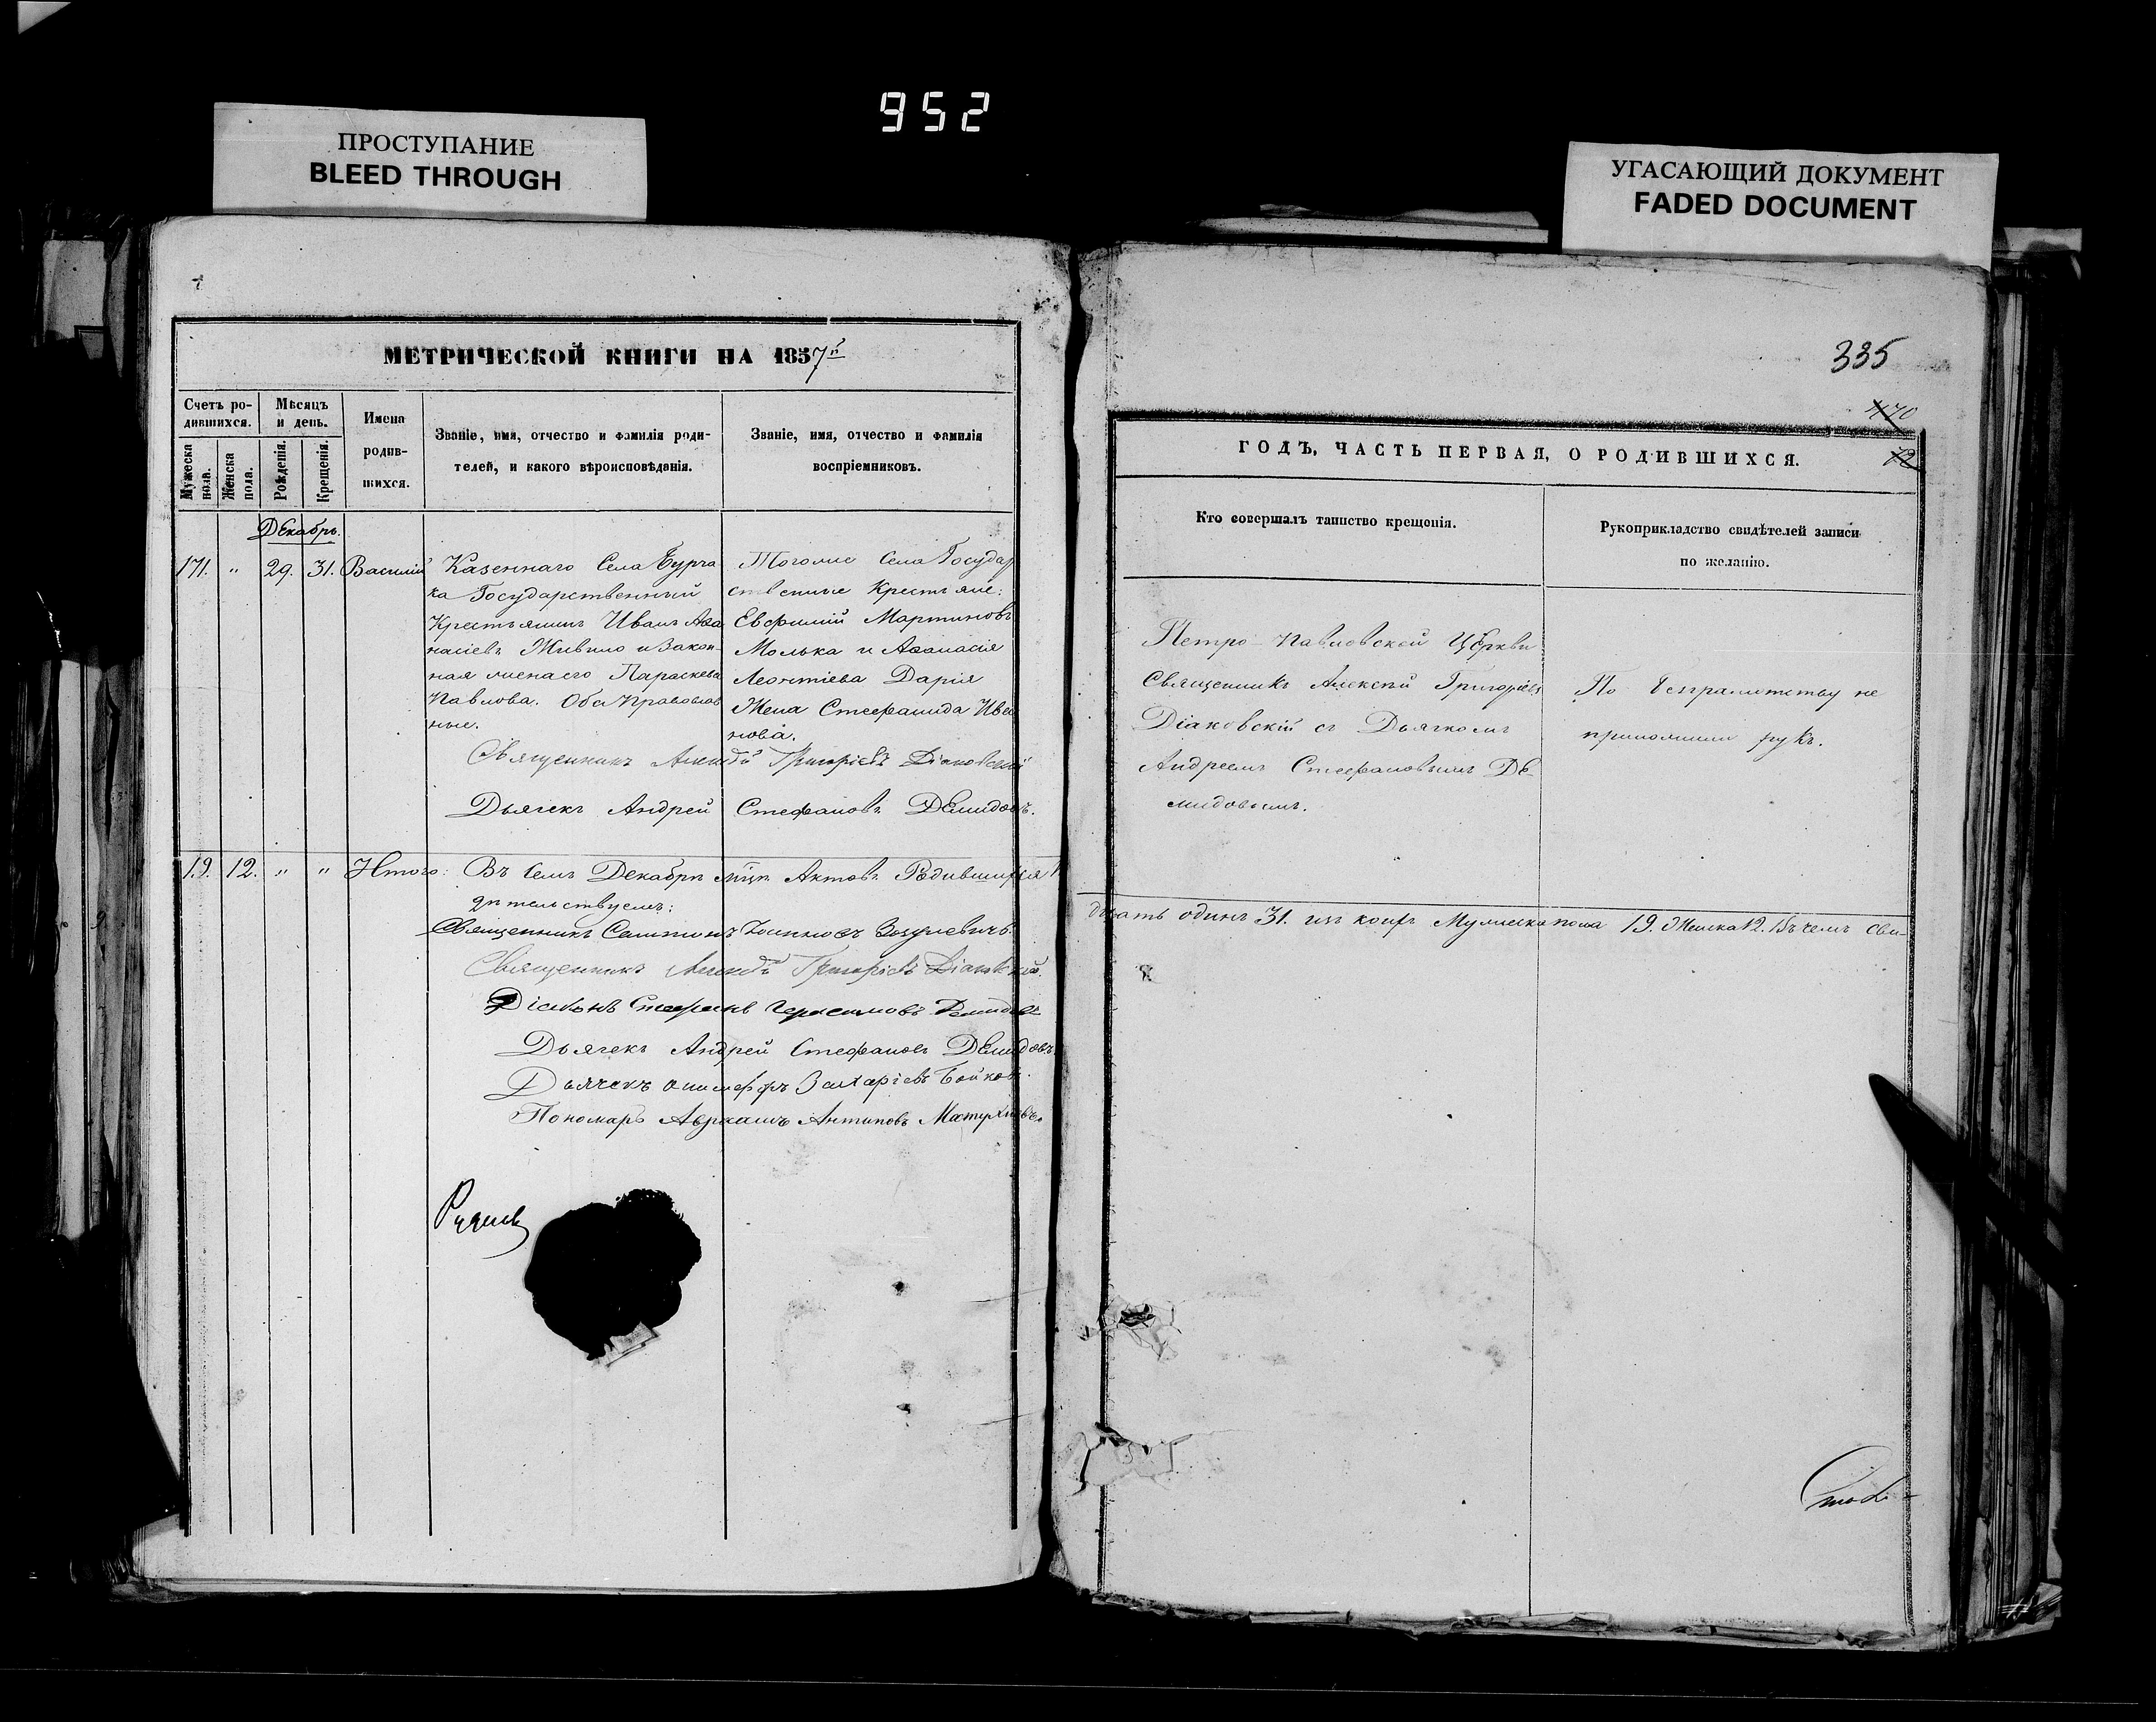 952
ПРОСТУПАНИЕ
BLEED THROUGH
УГАСАЮЩИЙ ДОКУМЕНТ
FADED DOCUMENT
МЕТРИЧЕСКОЙ КНИГИ НА 1857й
Счетъ ро-
дившихся.
Мужеска
пола.
Женска
пола.
Мѣсяцъ
и день.
Рожденія.
Крещенія.
Имена
родив-
шихся.
Званіе, имя, отчество и фамилія роди-
телей, и какого вѣроисповѣданія.
Званіе, имя, отчество и фамилія
воспріемниковъ.
Декабрь.
171. " 29. 31. Василій
Казеннаго Села Бурча
ка Государственный
Крестьянинъ Иванъ Аѳа
насіевъ Живило и Закон-
ная жена его Параскева
Павлова. Оба Православ
ные.
Тогоже Села Государ
ственные Крестьяне:
Евфимій Мартиновъ
Молька и Аѳанасія
Леонтіева Дарія
Жена Стефанида Ива
нова.
Священникъ Алексѣй Григоріевъ Діаковскій
Дьячекъ Андрей Стефановъ Демидовъ.
19. 12. " " Итого: Въ семъ Декабрѣ мцѣ Актовъ Родившихся
дѣтельствуемъ:
Священникъ Сампсонъ Іоанновъ
Священникъ Алексѣй Григоріевъ Діаковскій.
Діаконъ Стефанъ Герасимовъ Демидовъ
Дьячекъ Андрей Стефановъ Демидовъ
Дьячекъ Захаріевъ Бойков.
Пономарь Авраамъ Антиповъ
335
470
72
ГОДЪ, ЧАСТЬ ПЕРВАЯ, О РОДИВШИХСЯ.
Кто совершалъ таинство крещенія.
Рукоприкладство свидѣтелей записи
по желанію.
Петро-Павловской Церкви
Священникъ Алексѣй Григоріевъ
Діаковскій съ Дьячкомъ
Андреемъ Стефановымъ Де-
мидовымъ.
По безграмотству не
приложили рукъ.
дцать одинъ 31. изъ коихъ Мужеска пола 19. Женска 12. Въ чемъ сви-